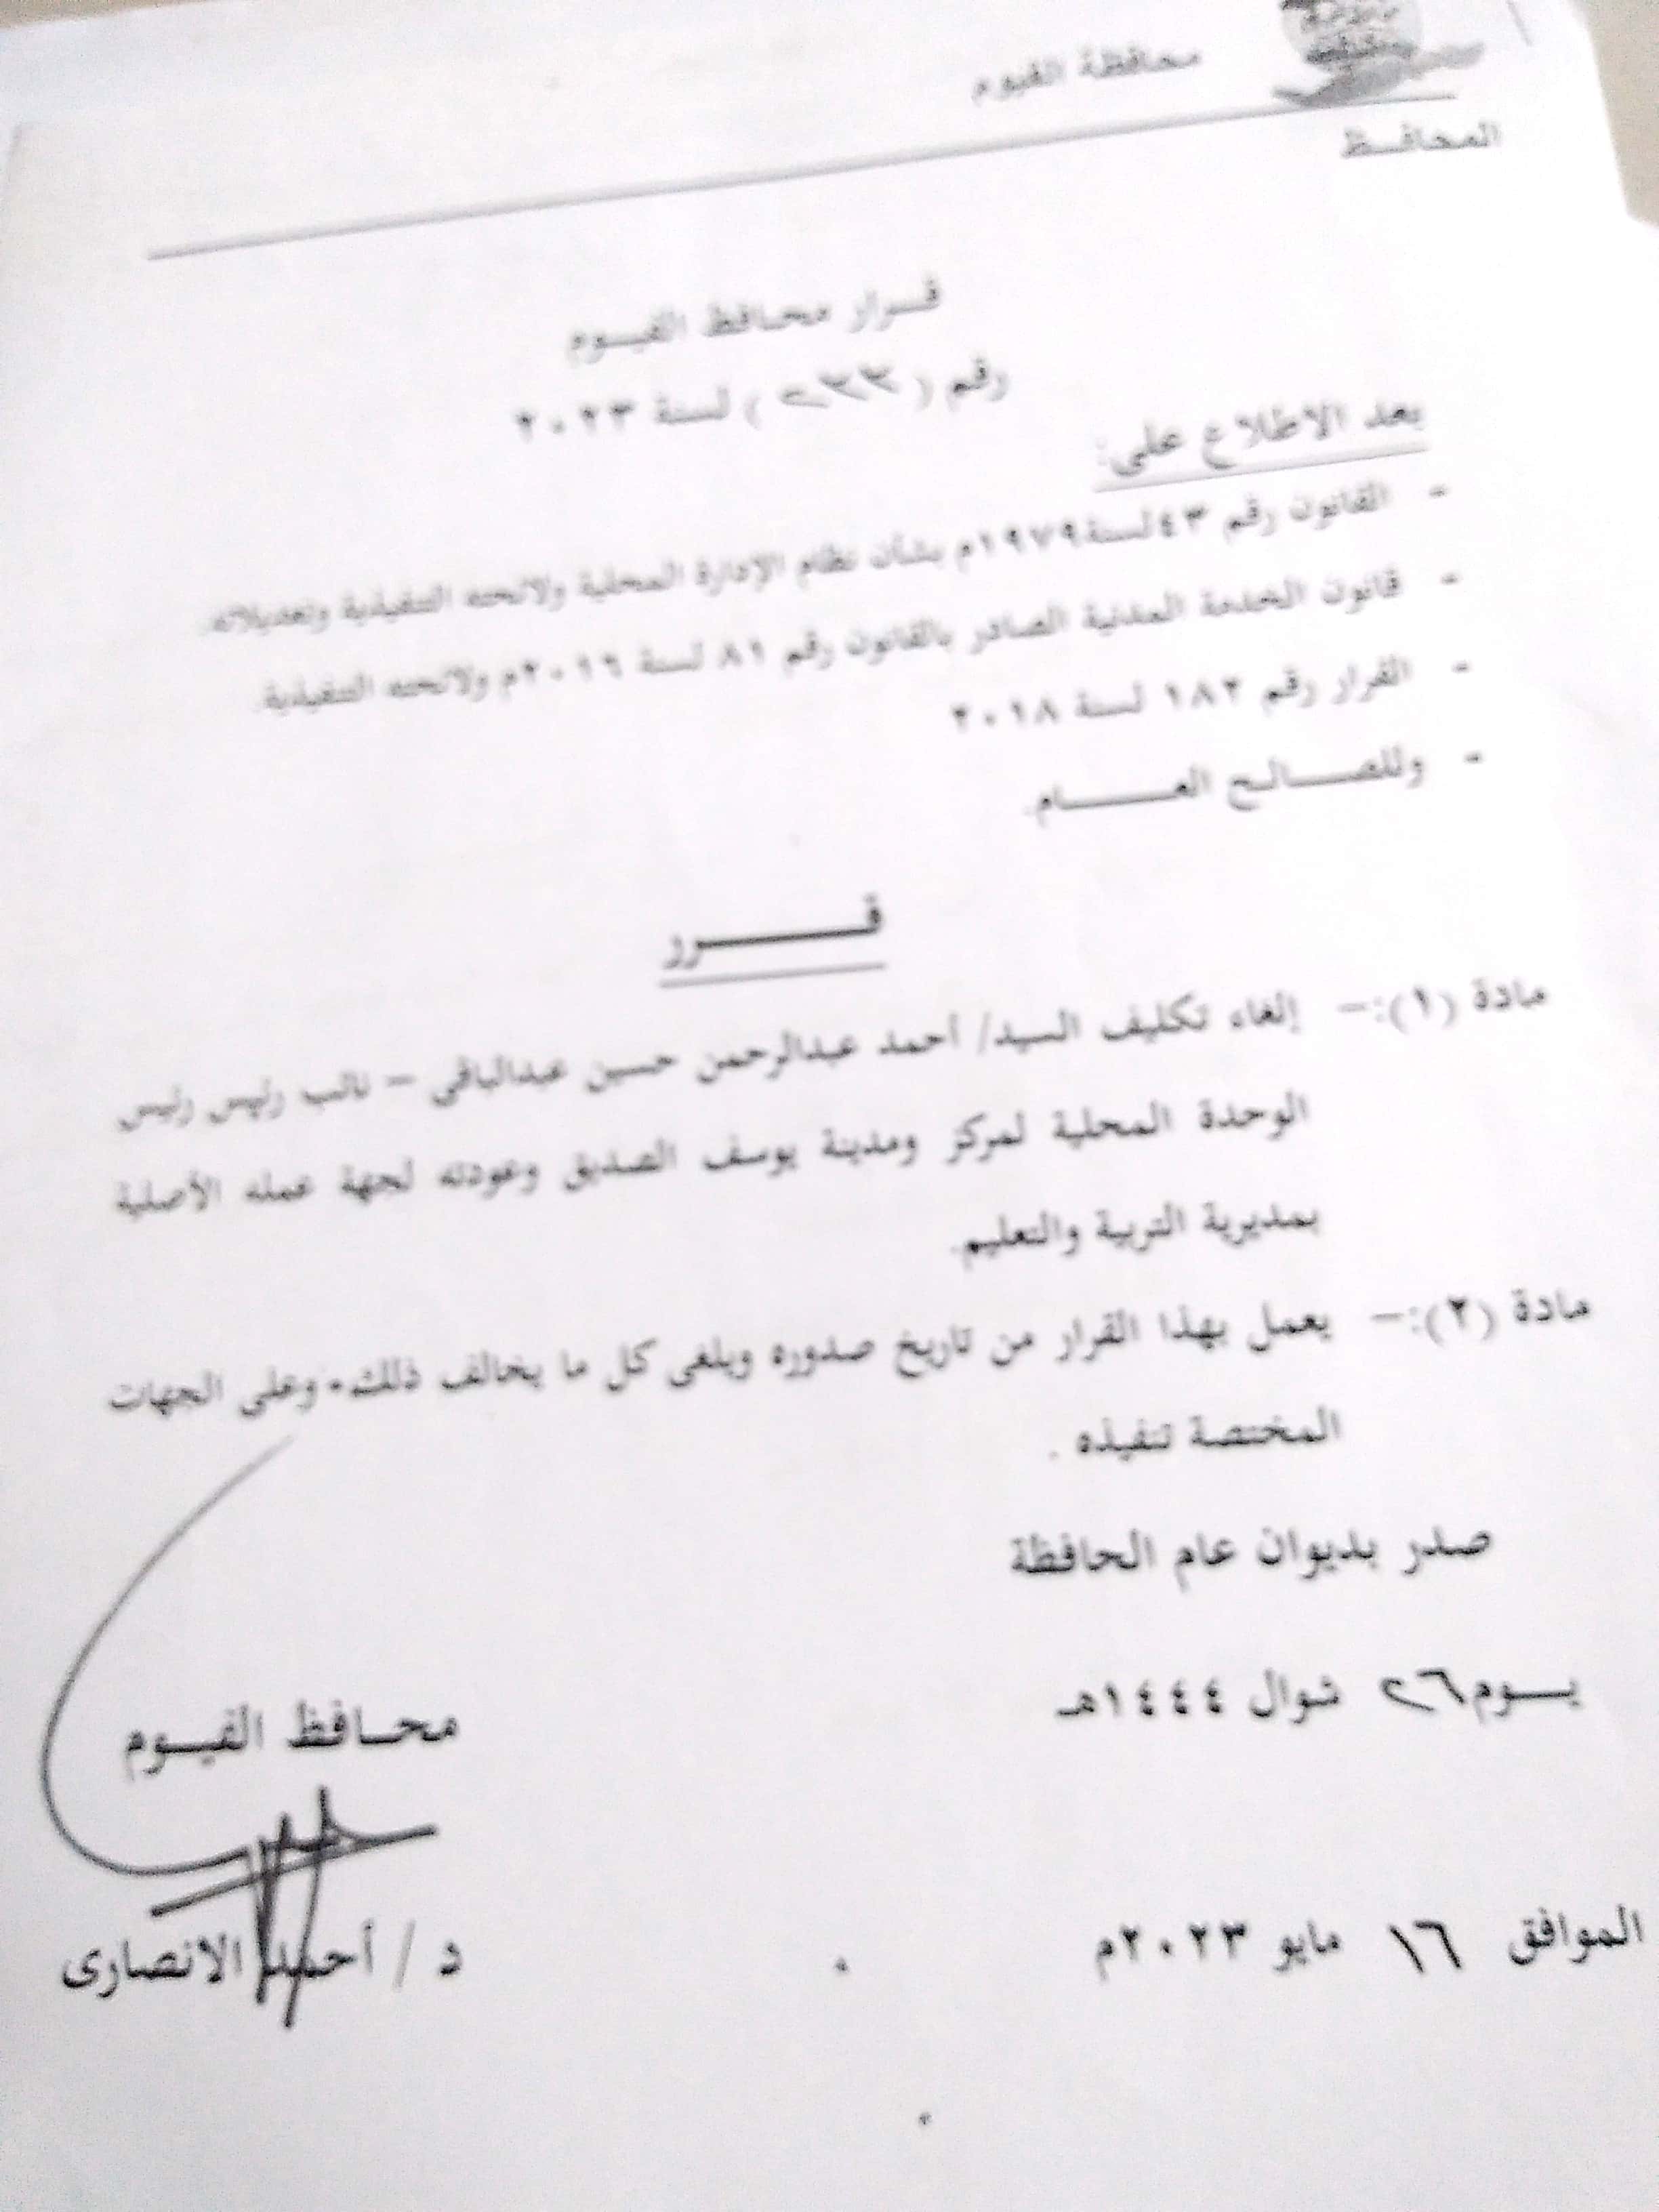 محافظة الفيوم
المحافـــظ
قـــرار محـافظ الفيـــوم
رقم ( ) لسنة ٢٠٢٣
بعد الاطلاع على:
- القانون رقم ٤٣ لسنة ١٩٧٩م بشأن نظام الإدارة المحلية ولائحته التنفيذية وتعديلاته.
- قانون الخدمة المدنية الصادر بالقانون رقم ٨١ لسنة ٢٠١٦م ولائحته التنفيذية.
- القرار رقم ١٨٢ لسنة ٢٠١٨
- وللصـــالح العـــــام.
قـــــــرر
مادة (١):– إلغاء تكليف السيد/ أحمد عبدالرحمن حسين عبدالباقى – نائب رئيس رئيس
الوحدة المحلية لمركز ومدينة يوسف الصديق وعودته لجهة عمله الأصلية
بمديرية التربية والتعليم.
مادة (٢):– يعمل بهذا القرار من تاريخ صدوره ويلغى كل ما يخالف ذلك، وعلى الجهات
المختصة تنفيذه .
صدر بديوان عام الحافظة
يـــوم ٢٦ شوال ١٤٤٤هـ
محـافظ الفيـــوم
الموافق ١٦ مايو ٢٠٢٣م
د / أحمد الانصارى